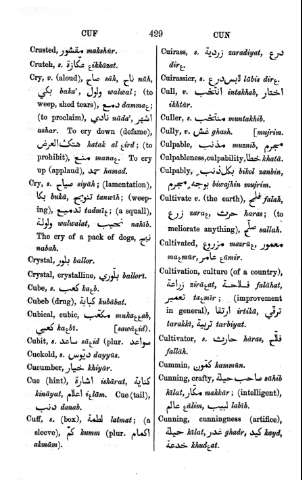 CUF
429
CUN
Crusted, مقشور makshúr.
Crutch, s. عكازة ɛikkázat.
Cry, v. (aloud), صاح sáh, ناح náh,
بكى baka', ولول walwal; (to
weep, shed tears), دمع damaɛ;
(to proclaim), نادى nádí,
ashar. To cry down (defame),
هتك العرض hatak al ɛird; (to
prohibit), منع manaɛ. To cry
up (applaud), حمد hamad.
Cry, s. صياح siyáh; (lamentation),
بكا buká, (weep-
ing), (a squall),
ولوال walwalat, نحيب nahíb.
The cry of a pack of dogs, نبح
nabah.
Crystal, بلور ballor.
Crystal, crystalline, بلوري ballorí.
Cube, s. كعب kaɛb.
Cubeb (drug), كبابة kubábat.
Cubical, cubic, مكعب mukaɛɛab,
كعبي kaɛbí. [sawáɛid).
Cubit, s. ساعد sáɛid (plur. سواعد
Cuckold, s. ديوس dayyús.
Cucumber, خيار khiyár.
Cue (hint), اشارة ishárat, كناية
kináyat, اعلام iɛlám. Cue (tail),
ذنب danab.
Cuff, s. (box), لطمة latmat; (a
sleeve), كم kumm (plur. اكمام
akmám).
Cuirass, s. زردية zaradiyat, درع
dirɛ.
Cuirassier, s. لابس درع lábis dirɛ.
Cull, v. انتخب intakhab, اختار
ikhtár.
Culler, s. منتخب muntakhib.
Cully, v. غش ghash. [mujrim.
Culpable, مذنب muznib, مجرم
Culpableness, culpability, خطا khatá.
Culpably, بكل ذنب bikol zanbin,
بوجه مجرم biwajhin mujrim.
Cultivate v. (the earth), فلح falah,
زرع zaraɛ, حرث haras; (to
meliorate anything), صلح sallah.
Cultivated, مزروع mazrúɛ, معمور
maɛmúr, عامر ɛámir.
Cultivation, culture (of a country),
زراعة zíráɛat, فلاحة faláhat,
تعمير taɛmír; (improvement
in general), ارتقا irtiká, ترقي
tarakkí, تربية tarbiyat.
Cultivator, s. حارث háras, فلاح
falláh.
Cummin, كمون kammún.
Cunning, crafty, صاحب حيلة sáhib
hílat, مكار makkár; (intelligent),
عالم ɛálim, لبيب labíb.
Cunning, cunningness (artifice),
حيلة hílat, غدر ghadr, كيد kayd,
خدعة khudɛat.